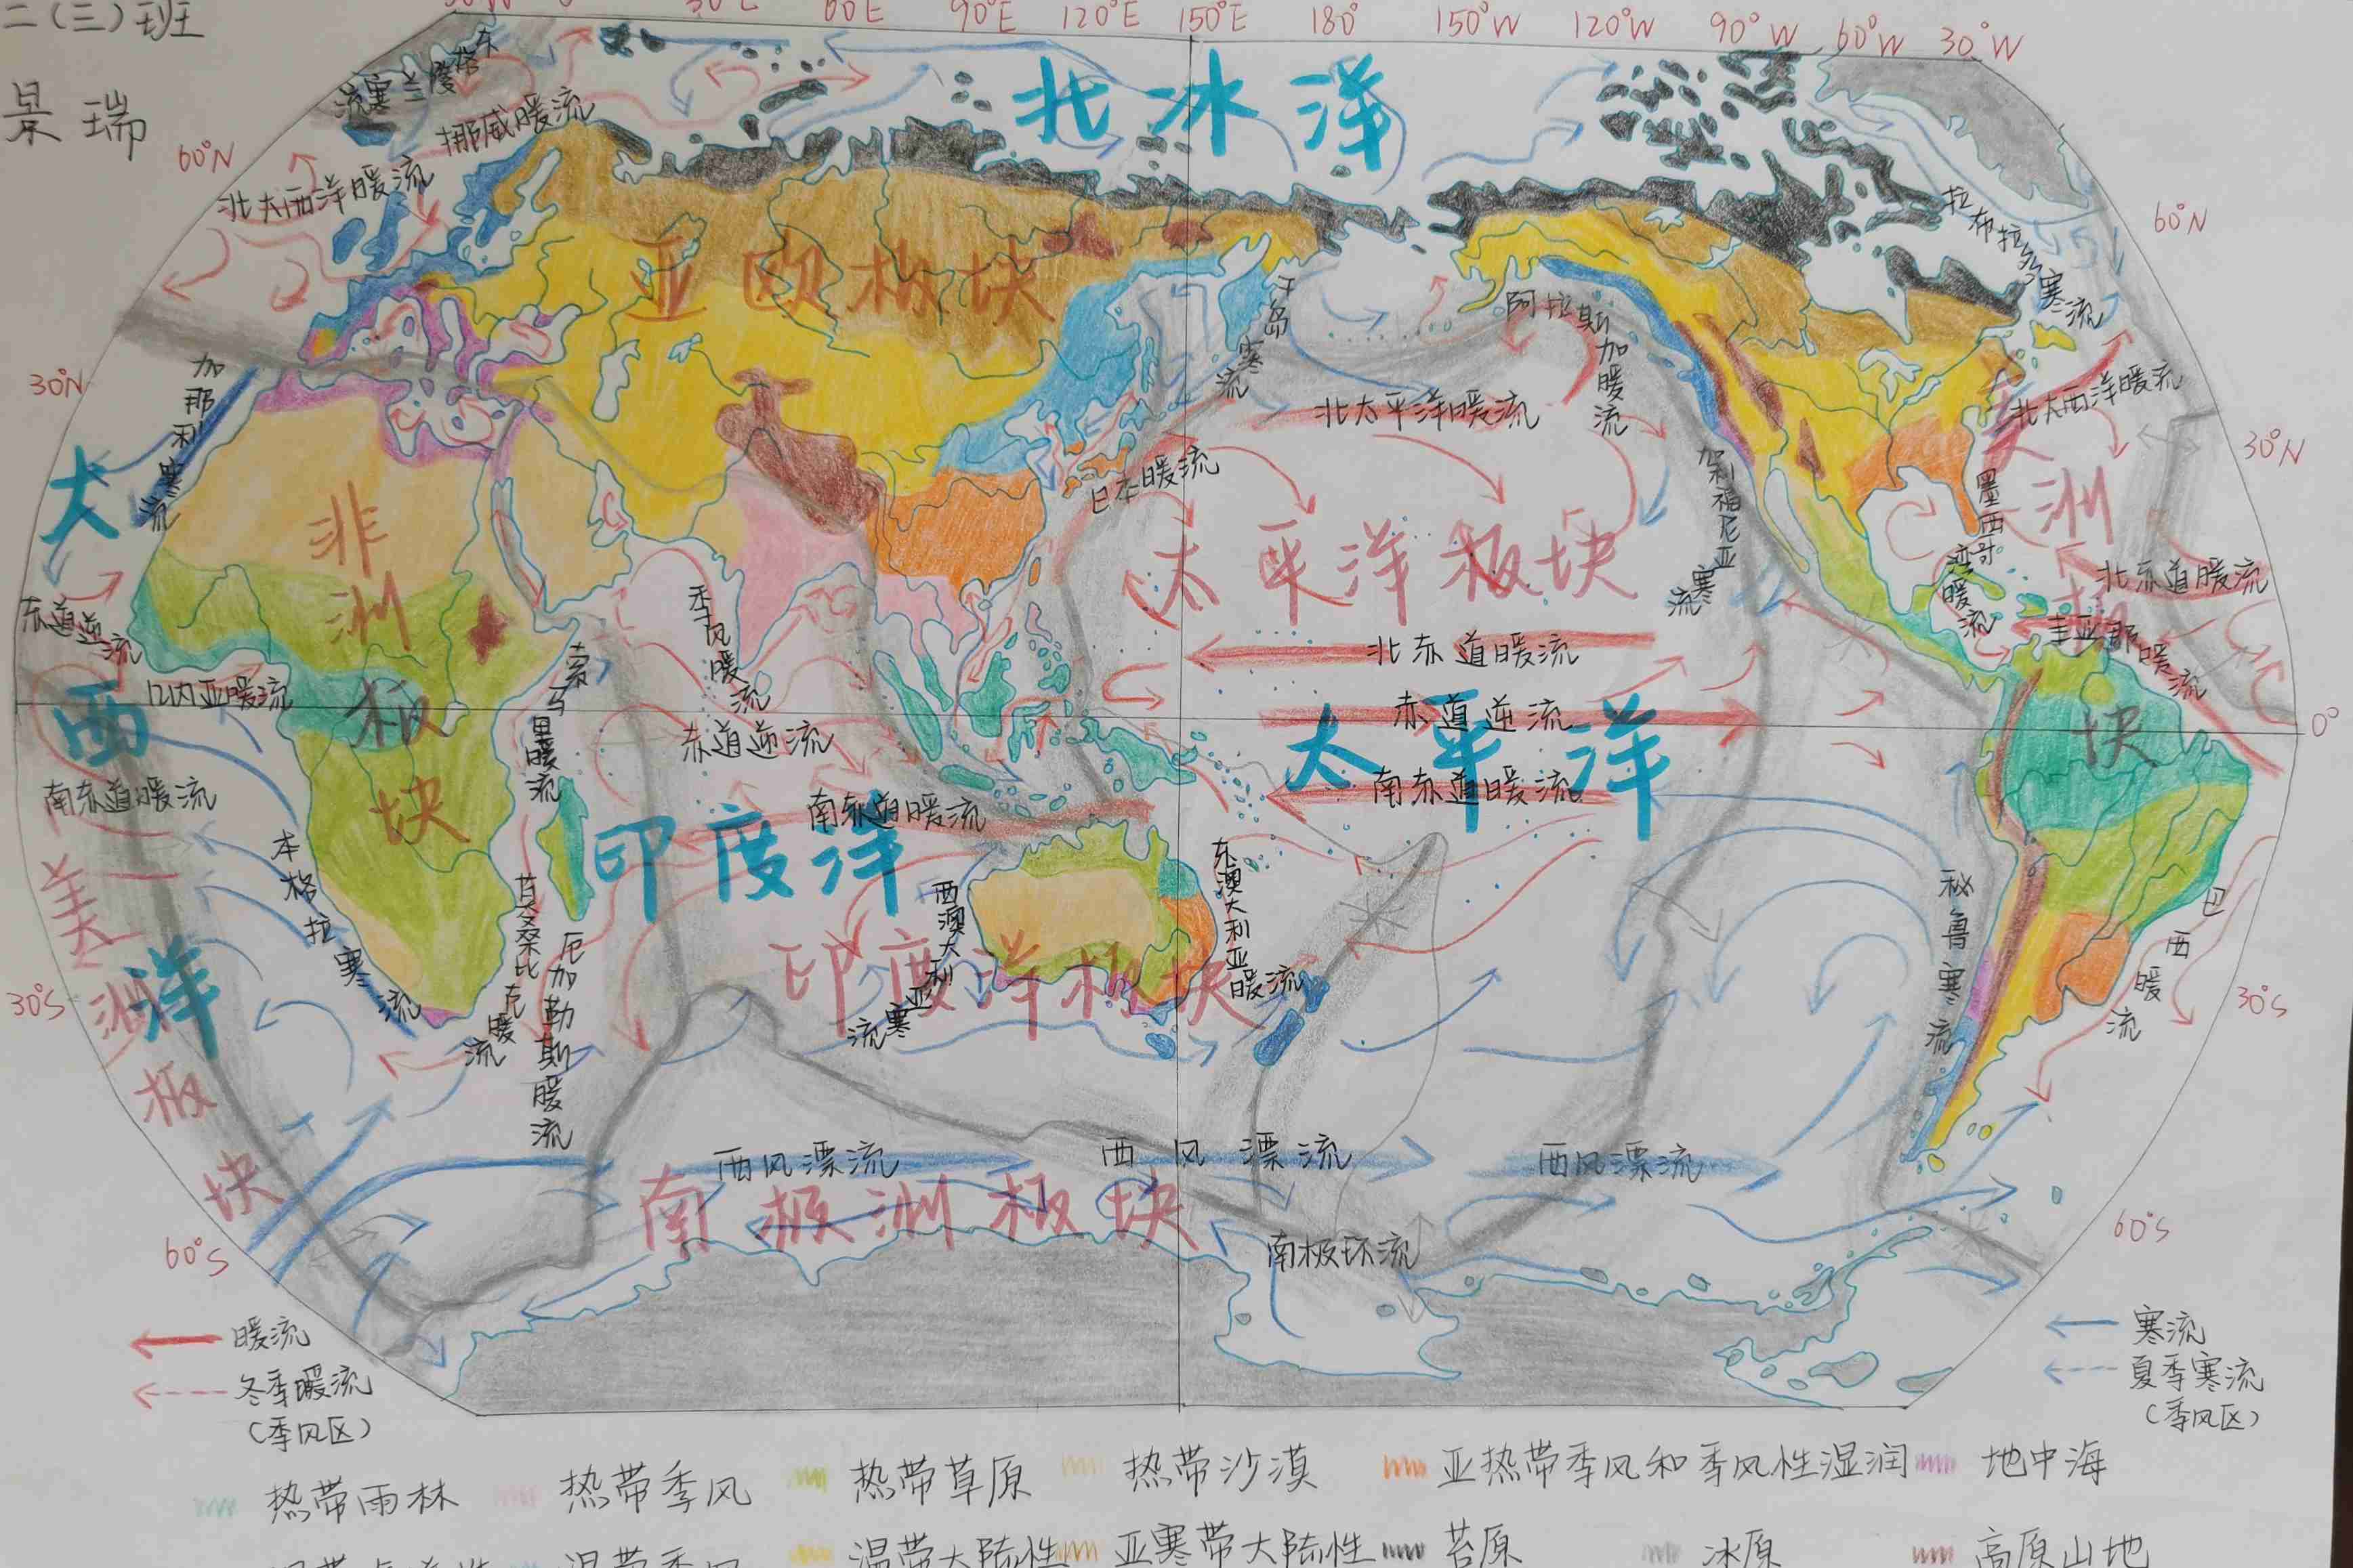 二(三)班
景瑞
60°E
90°E
120°E
150°E
180°
150°W
120°W
90°W
60°W
30°W
北冰洋
东格陵兰寒流
挪威暖流
60°N
北大西洋暖流
亚欧板块
拉布拉多寒流
60°N
千岛寒流
阿拉斯加暖流
30°N
加那利寒流
北太平洋暖流
北大西洋暖流
30°N
日本暖流
加利福尼亚寒流
墨西哥湾暖流
大西洋
非洲板块
太平洋板块
美洲板块
北赤道暖流
赤道逆流
季风暖流
北赤道暖流
圭亚那暖流
几内亚暖流
索马里暖流
赤道逆流
赤道逆流
太平洋
0°
南赤道暖流
南赤道暖流
南赤道暖流
印度洋
本格拉寒流
莫桑比克暖流
厄加勒斯暖流
西澳大利亚寒流
东澳大利亚暖流
印度洋板块
秘鲁寒流
巴西暖流
美洲板块
30°S
30°S
西风漂流
西风漂流
西风漂流
南极洲板块
南极环流
60°S
60°S
暖流
冬季暖流
(季风区)
寒流
夏季寒流
(季风区)
热带雨林 热带季风 热带草原 热带沙漠 亚热带季风和季风性湿润 地中海
温带季风 温带大陆性 亚寒带大陆性 苔原 冰原 高原山地